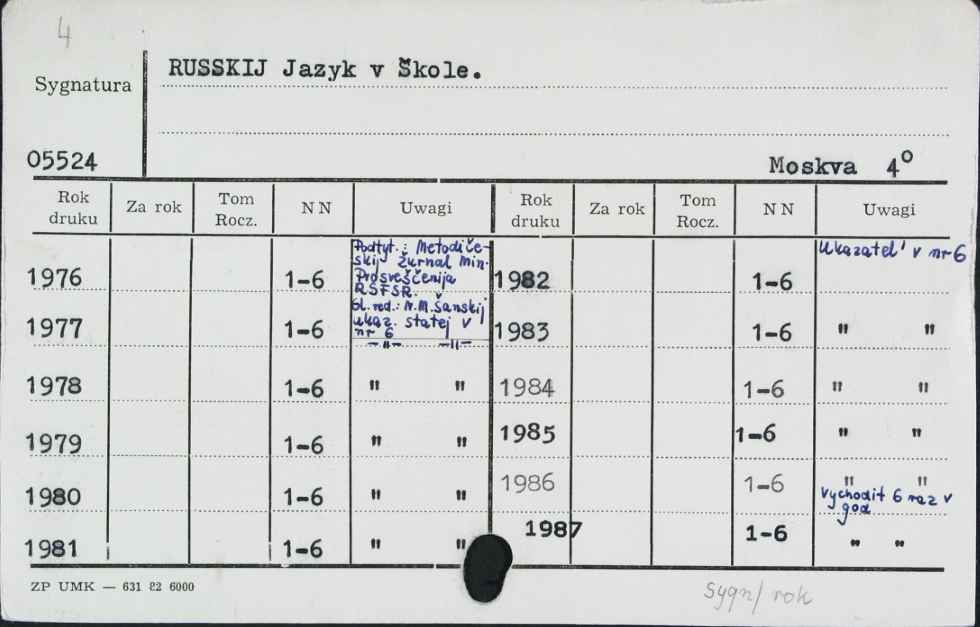 4
RUSSKIJ Jazyk v Škole.
Sygnatura
05524
Moskva 4º
Rok druku Za rok Tom Rocz. NN Uwagi Rok druku Za rok Tom Rocz. NN Uwagi
Podtyt.: Metodiče-
skij žurnal Min.
Prosveščenija
RSFSR.
1976 1-6
Gl. red.: N.M. Šanskij
ukaz. statej v
nr 6
1977 1-6
—"— —"—
1978 1-6 " "
1979 1-6 " "
1980 1-6 " "
1981 1-6 " "
Ukazatel' v nr 6
1982 1-6
1983 1-6 " "
1984 1-6 " "
1985 1-6 " "
1986 1-6 " "
vychodit 6 raz v
god
1987 1-6 " "
ZP UMK — 631 82 6000
sygn/ rok